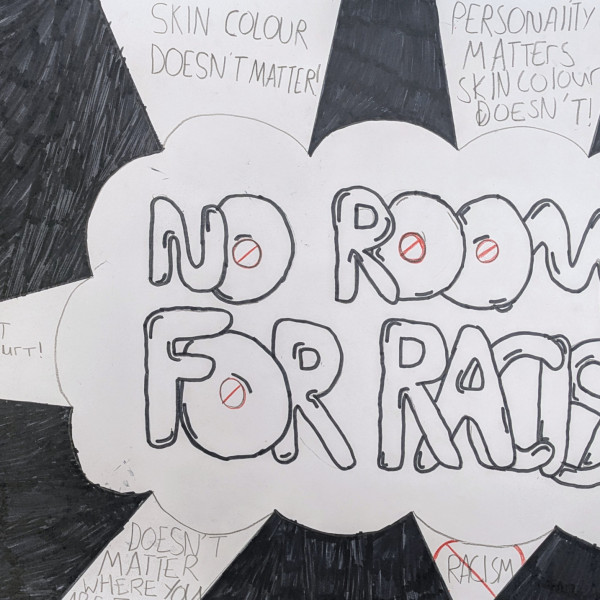 SKIN COLOUR
DOESN'T MATTER!
PERSONALITY
MATTERS
SKIN COLOUR
DOESN'T!
NO ROOM
FOR RACIS
T
URT!
DOESN'T
MATTER
WHERE YOU
RACISM